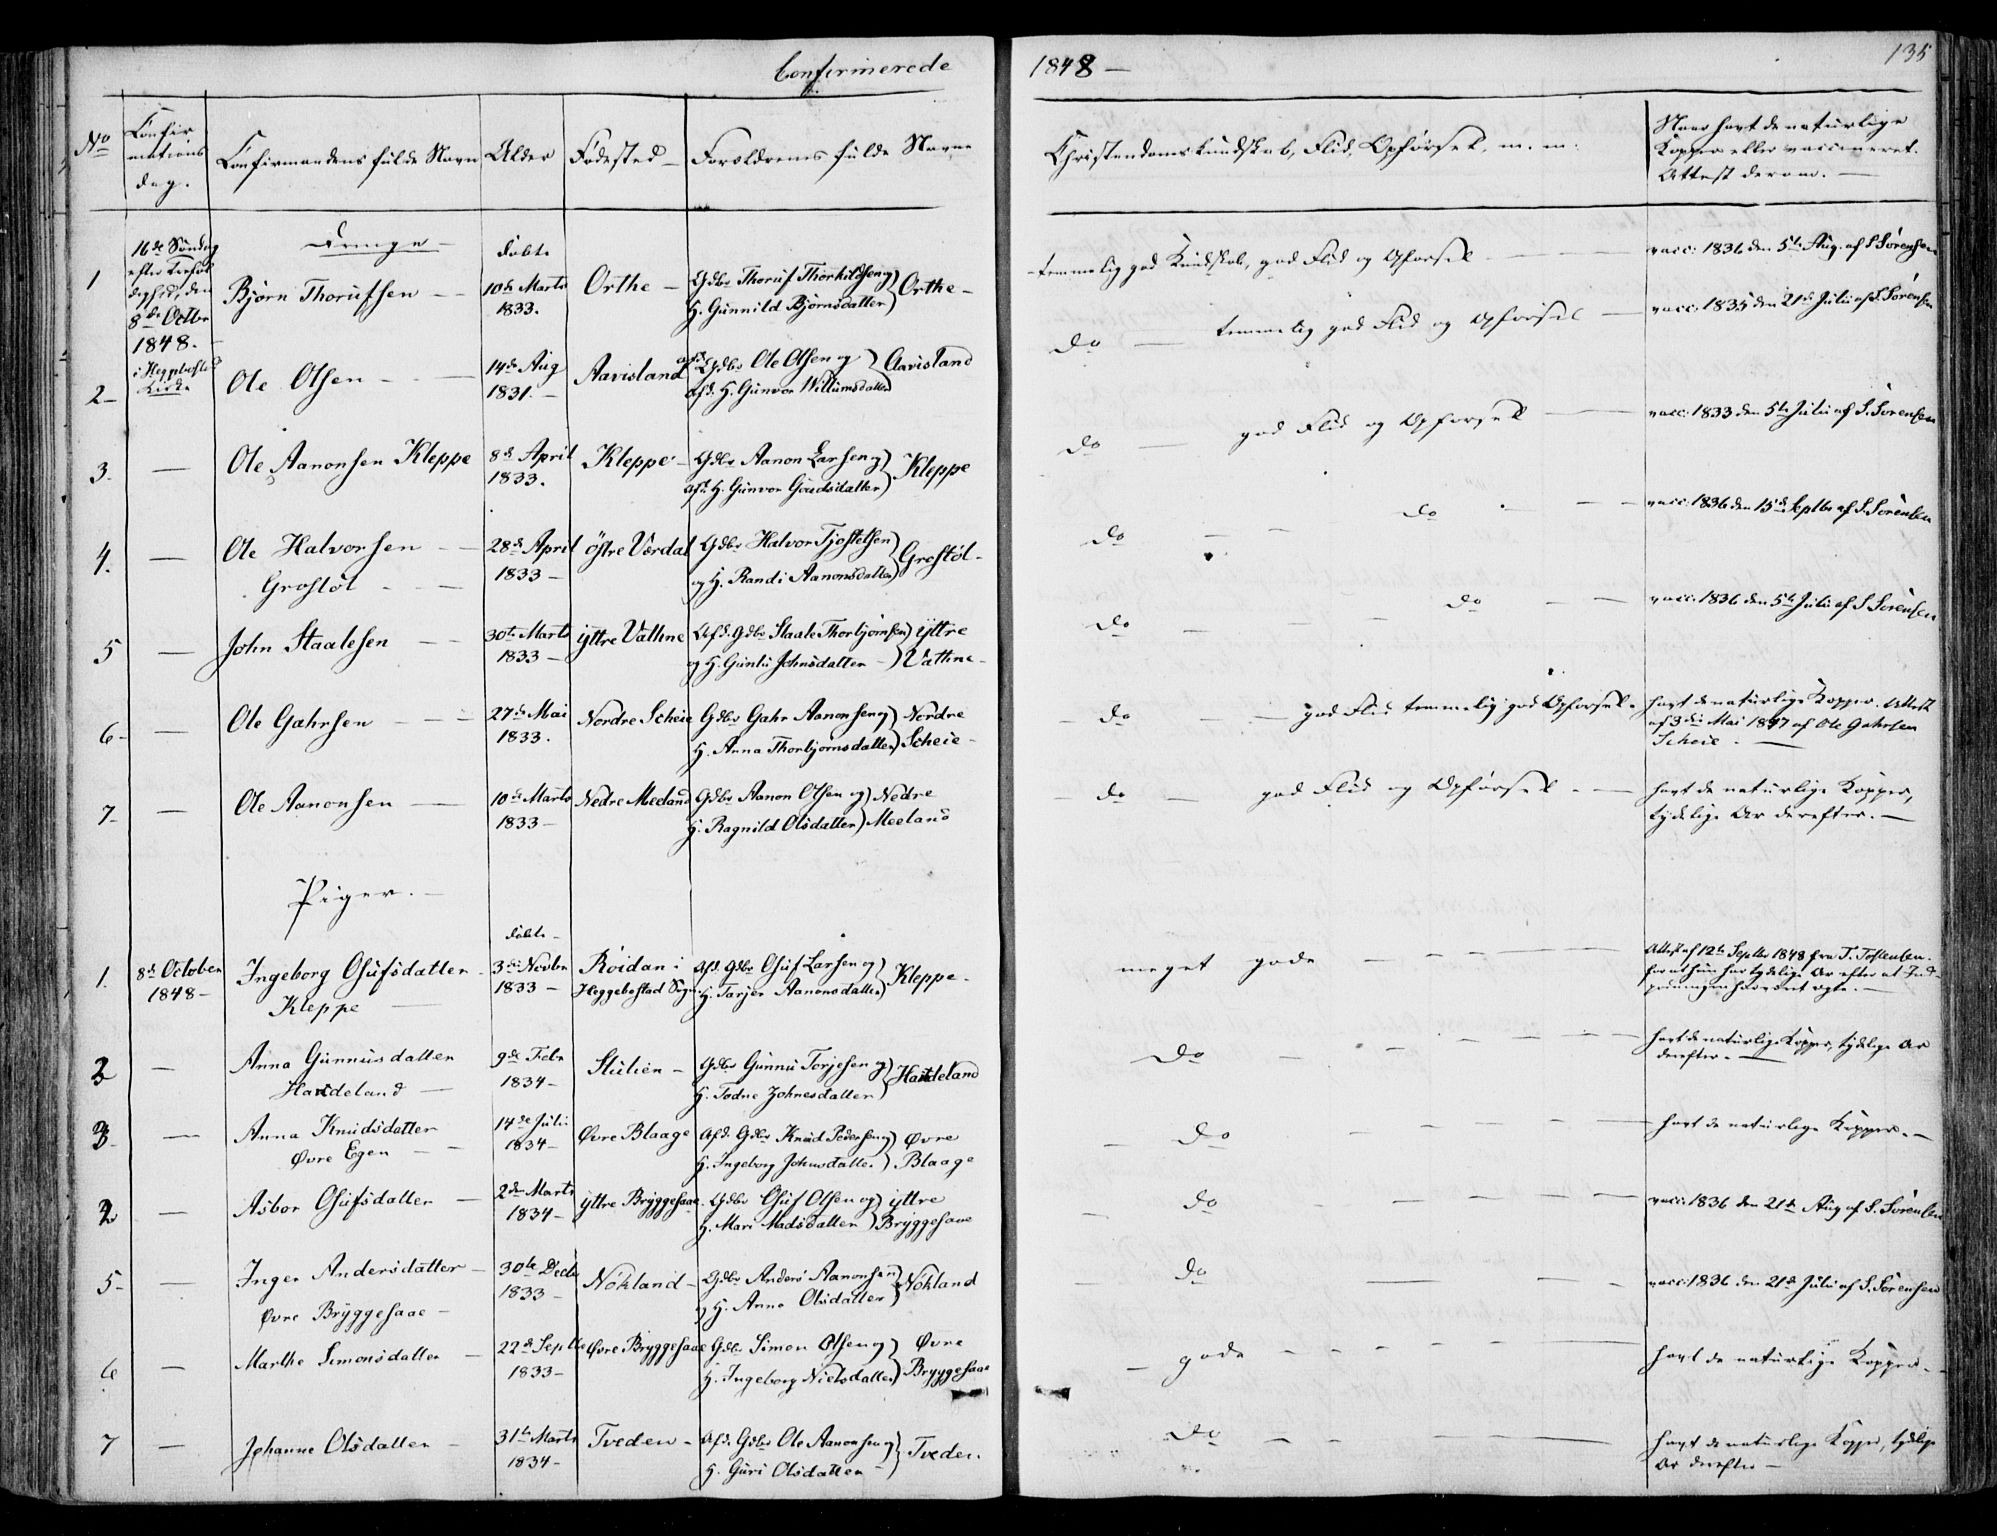 Confirmerede
1848 —
135
No
Confirmations dag.
Confirmandens fulde Navn
Alder
Fødested
Forældrenes fulde Navne
Christendoms Kundskab, Flid, Opførsel, m. m.
Naar havt de naturlige
Kopper eller vaccineret.
Attest derom. —
Drenge —
1
16de Søndag
efter Trefol
dighed, den
8de Octbr
1848. —
i Heggebostad
Kirke
Bjørn Thorufsen — —
døbt
10de Marts
1833.
Orthe —
Gdbr Thoruf Thorkildsen og
H. Gunnild Bjørnsdatter
Orthe —
temmelig god Kundskab, god Flid og Opførsel
vacc: 1836 den 5te Aug. af S Sørensen
2 —
Ole Olsen — —
14de Aug
1831. —
Aavisland
afd. Gdbr Ole Olsen og
afd. H. Gunvor Willumsdatter
Aavisland
do — temmelig god Flid og Opførsel —
vacc: 1835 den 21de Julii af S. Sørensen
3.
—
Ole Aanonsen Kleppe
8de April
1833.
Kleppe —
Gdbr Aanon Larsen og
afd. H. Gunvor Gaudsdatter
Kleppe
do — god Flid og Opførsel —
vacc: 1833 den 5te Julii af S. Sørensen
4.
—
Ole Halvorsen —
Grostøl — —
28de April
1833 —
östre Værdal
Gdbr Halvor Tjøstelsen
og H. Randi Aanonsdatter
Grostøl —
do — do — —
vacc: 1836 den 15de Septbr af S. Sörensen
5
—
John Staalesen — —
30te Marts
1833 —
ÿttre Vathne
Afd. Gdbr Staale Thorbjörnsen
og H. Gunlu Johnsdatter —
ÿttre
Vathne —
do — — — do — —
vacc: 1836 den 5te Julii af S Sørensen
6 —
—
Ole Gahrsen — — —
27de Mai
1833.
Nordre Scheie
Gdbr Gahr Aanonsen og
H. Anna Thorbjornsdatter
Nordre
Scheie —
— do — — god Flid temmelig god Opførsel —
havt de naturlige Kopper. Attest
af 3die Mai 1847 af Ole Gahrsen
Scheie. —
7 —
—
Ole Aanonsen —
10de Marts
1833 —
Nedre Meeland
Gdbr Aanon Olsen og
H. Ragnild Olsdatter
Nedre
Meeland
— do — god Flid og Opførsel — —
havt de naturlige Kopper,
tydelige Ar derefter. —
Piger. —
1.
8de October
1848 —
Ingeborg Osufsdatter —
Kleppe —
døbt —
3die Novbr
1833 —
Röidan i
Heggebostad Sogn
Afd. Gdbr Osuf Larsen og
H. Tarjer Aanonsdatter
Kleppe —
meget gode — — — —
Attest af 12te Septbr 1848 fra T. Tostensen
for at hun har tydelige Ar efter at Ind-
podningen har været ægte. —
2
—
Anna Gunnusdatter
Haddeland —
9de Febr
1834 —
Stulien —
Gdbr Gunnu Torjesen og
H. Todne Johnesdatter
Haddeland
do — — — —
havt de naturlige Kopper, tydelige Ar
derefter — —
3
—
Anna Knudsdatter
Øvre Egen — —
14de Julii
1834 —
Øvre Blaage
Afd. Gdbr Knud Pedersen og
H. Ingeborg Johnsdatter
Øvre
Blaage
— do — — — —
havt de naturlige Kopper. —
4
—
Asbor Osufsdatter —
2den Marts
1834 —
ÿttre Brÿggesaae
Gdbr Osuf Olsen og
H. Mari Madsdatter
ÿttre
Bryggesaae
— do — — — —
vacc: 1836 den 21de Aug af S. Sörensen
5 —
—
Inger Andersdatter —
Øvre Brÿggesaae —
30te Decbr
1833 —
Nökland —
Gdbr Anders Aanonsen
og H. Anna Olsdatter
Nökland
— do — — —
vacc: 1836 den 21de Julii af S. Sörensen
6
—
Marthe Simonsdatter —
22de Septbr
1833 —
Øvre Brÿggesaae
Gdbr Simen Olsen og
H. Ingeborg Nielsdatter
Øvre
Bryggesaae
— gode — — — —
havt de naturlige Kopper —
7
—
Johanne Olsdatter —
31te Marts
1834 —
Tveden —
Afd. Gdbr Ole Aanonsen og
H. Guri Olsdatter —
Tveden.
do — — —
havt de naturlige Kopper, tydelige
Ar derefter —